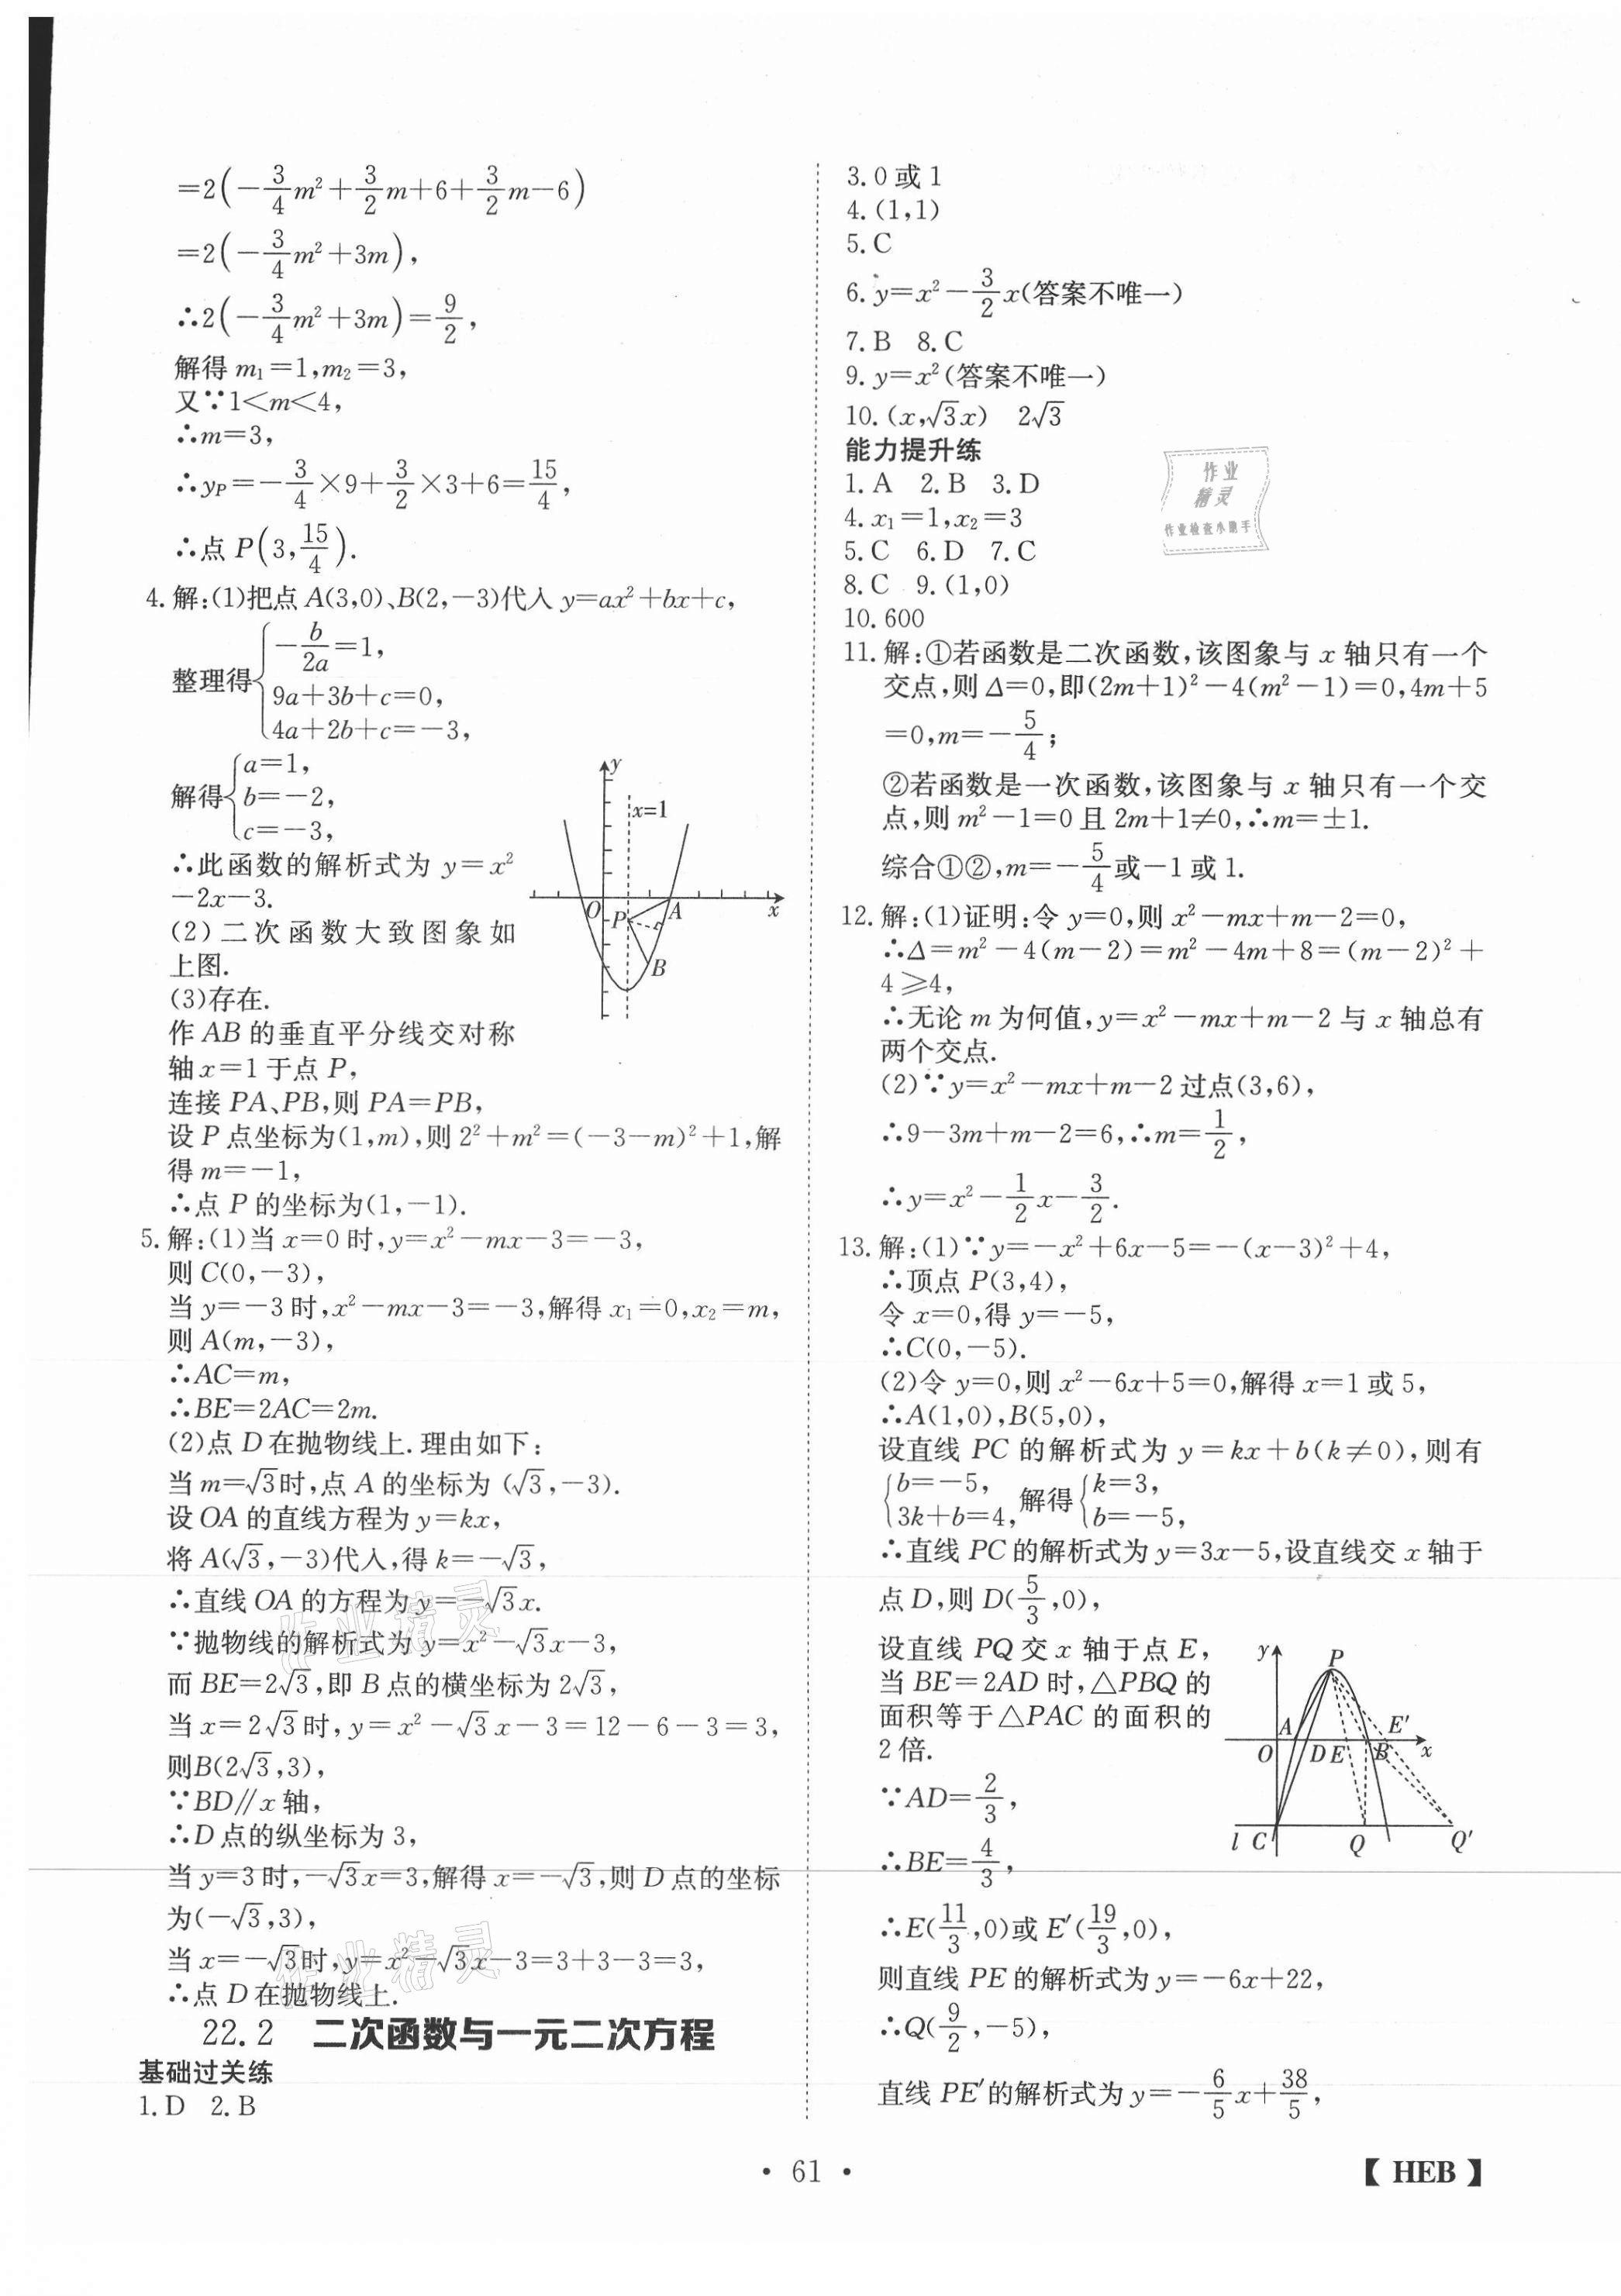 =2(-3/4m²+3/2m+6+3/2m-6)
=2(-3/4m²+3m),
∴2(-3/4m²+3m)=9/2,
解得 m₁=1,m₂=3,
又∵1<m<4,
∴m=3,
∴y_P=-3/4×9+3/2×3+6=15/4,
∴点 P(3,15/4).
4.解:(1)把点 A(3,0)、B(2,-3)代入 y=ax²+bx+c,
整理得{-b/2a=1,
9a+3b+c=0,
4a+2b+c=-3,
解得{a=1,
b=-2,
c=-3,
∴此函数的解析式为 y=x²
-2x-3.
(2)二次函数大致图象如
上图.
(3)存在.
作 AB 的垂直平分线交对称
轴 x=1 于点 P,
连接 PA、PB,则 PA=PB,
设 P 点坐标为(1,m),则 2²+m²=(-3-m)²+1,解
得 m=-1,
∴点 P 的坐标为(1,-1).
y
x=1
O
P
A
x
B
5.解:(1)当 x=0 时,y=x²-mx-3=-3,
则 C(0,-3),
当 y=-3 时,x²-mx-3=-3,解得 x₁=0,x₂=m,
则 A(m,-3),
∴AC=m,
∴BE=2AC=2m.
(2)点 D 在抛物线上.理由如下:
当 m=√3时,点 A 的坐标为 (√3,-3).
设 OA 的直线方程为 y=kx,
将 A(√3,-3)代入,得 k=-√3,
∴直线 OA 的方程为 y=-√3x.
∵抛物线的解析式为 y=x²-√3x-3,
而 BE=2√3,即 B 点的横坐标为 2√3,
当 x=2√3时,y=x²-√3x-3=12-6-3=3,
则B(2√3,3),
∵BD∥x 轴,
∴D 点的纵坐标为 3,
当 y=3 时,-√3x=3,解得 x=-√3,则 D 点的坐标
为(-√3,3),
当 x=-√3时,y=x²-√3x-3=3+3-3=3,
∴点 D 在抛物线上.
22.2 二次函数与一元二次方程
基础过关练
1.D 2.B
3.0 或 1
4.(1,1)
5.C
6.y=x²-3/2x(答案不唯一)
7.B 8.C
9.y=x²(答案不唯一)
10.(x,√3x) 2√3
能力提升练
1.A 2.B 3.D
4.x₁=1,x₂=3
5.C 6.D 7.C
8.C 9.(1,0)
10.600
作业
精灵
作业检查小助手
11.解:①若函数是二次函数,该图象与 x 轴只有一个
交点,则 Δ=0,即(2m+1)²-4(m²-1)=0,4m+5
=0,m=-5/4;
②若函数是一次函数,该图象与 x 轴只有一个交
点,则 m²-1=0 且 2m+1≠0,∴m=±1.
综合①②,m=-5/4或-1 或 1.
12.解:(1)证明:令 y=0,则 x²-mx+m-2=0,
∴Δ=m²-4(m-2)=m²-4m+8=(m-2)²+
4≥4,
∴无论 m 为何值,y=x²-mx+m-2 与 x 轴总有
两个交点.
(2)∵y=x²-mx+m-2 过点(3,6),
∴9-3m+m-2=6,∴m=1/2,
∴y=x²-1/2x-3/2.
13.解:(1)∵y=-x²+6x-5=-(x-3)²+4,
∴顶点 P(3,4),
令 x=0,得 y=-5,
∴C(0,-5).
(2)令 y=0,则 x²-6x+5=0,解得 x=1 或 5,
∴A(1,0),B(5,0),
设直线 PC 的解析式为 y=kx+b(k≠0),则有
{b=-5,
3k+b=4,解得{k=3,
b=-5,
∴直线 PC 的解析式为 y=3x-5,设直线交 x 轴于
点 D,则 D(5/3,0),
设直线 PQ 交 x 轴于点 E,
当 BE=2AD 时,△PBQ 的
面积等于△PAC 的面积的
2 倍.
∵AD=2/3,
∴BE=4/3,
y
P
A
E′
O
D
E
B
x
l
C
Q
Q′
∴E(11/3,0)或 E′(19/3,0),
则直线 PE 的解析式为 y=-6x+22,
∴Q(9/2,-5),
直线 PE′的解析式为 y=-6/5x+38/5,
作业精灵
作业精灵
· 61 ·
【 HEB 】